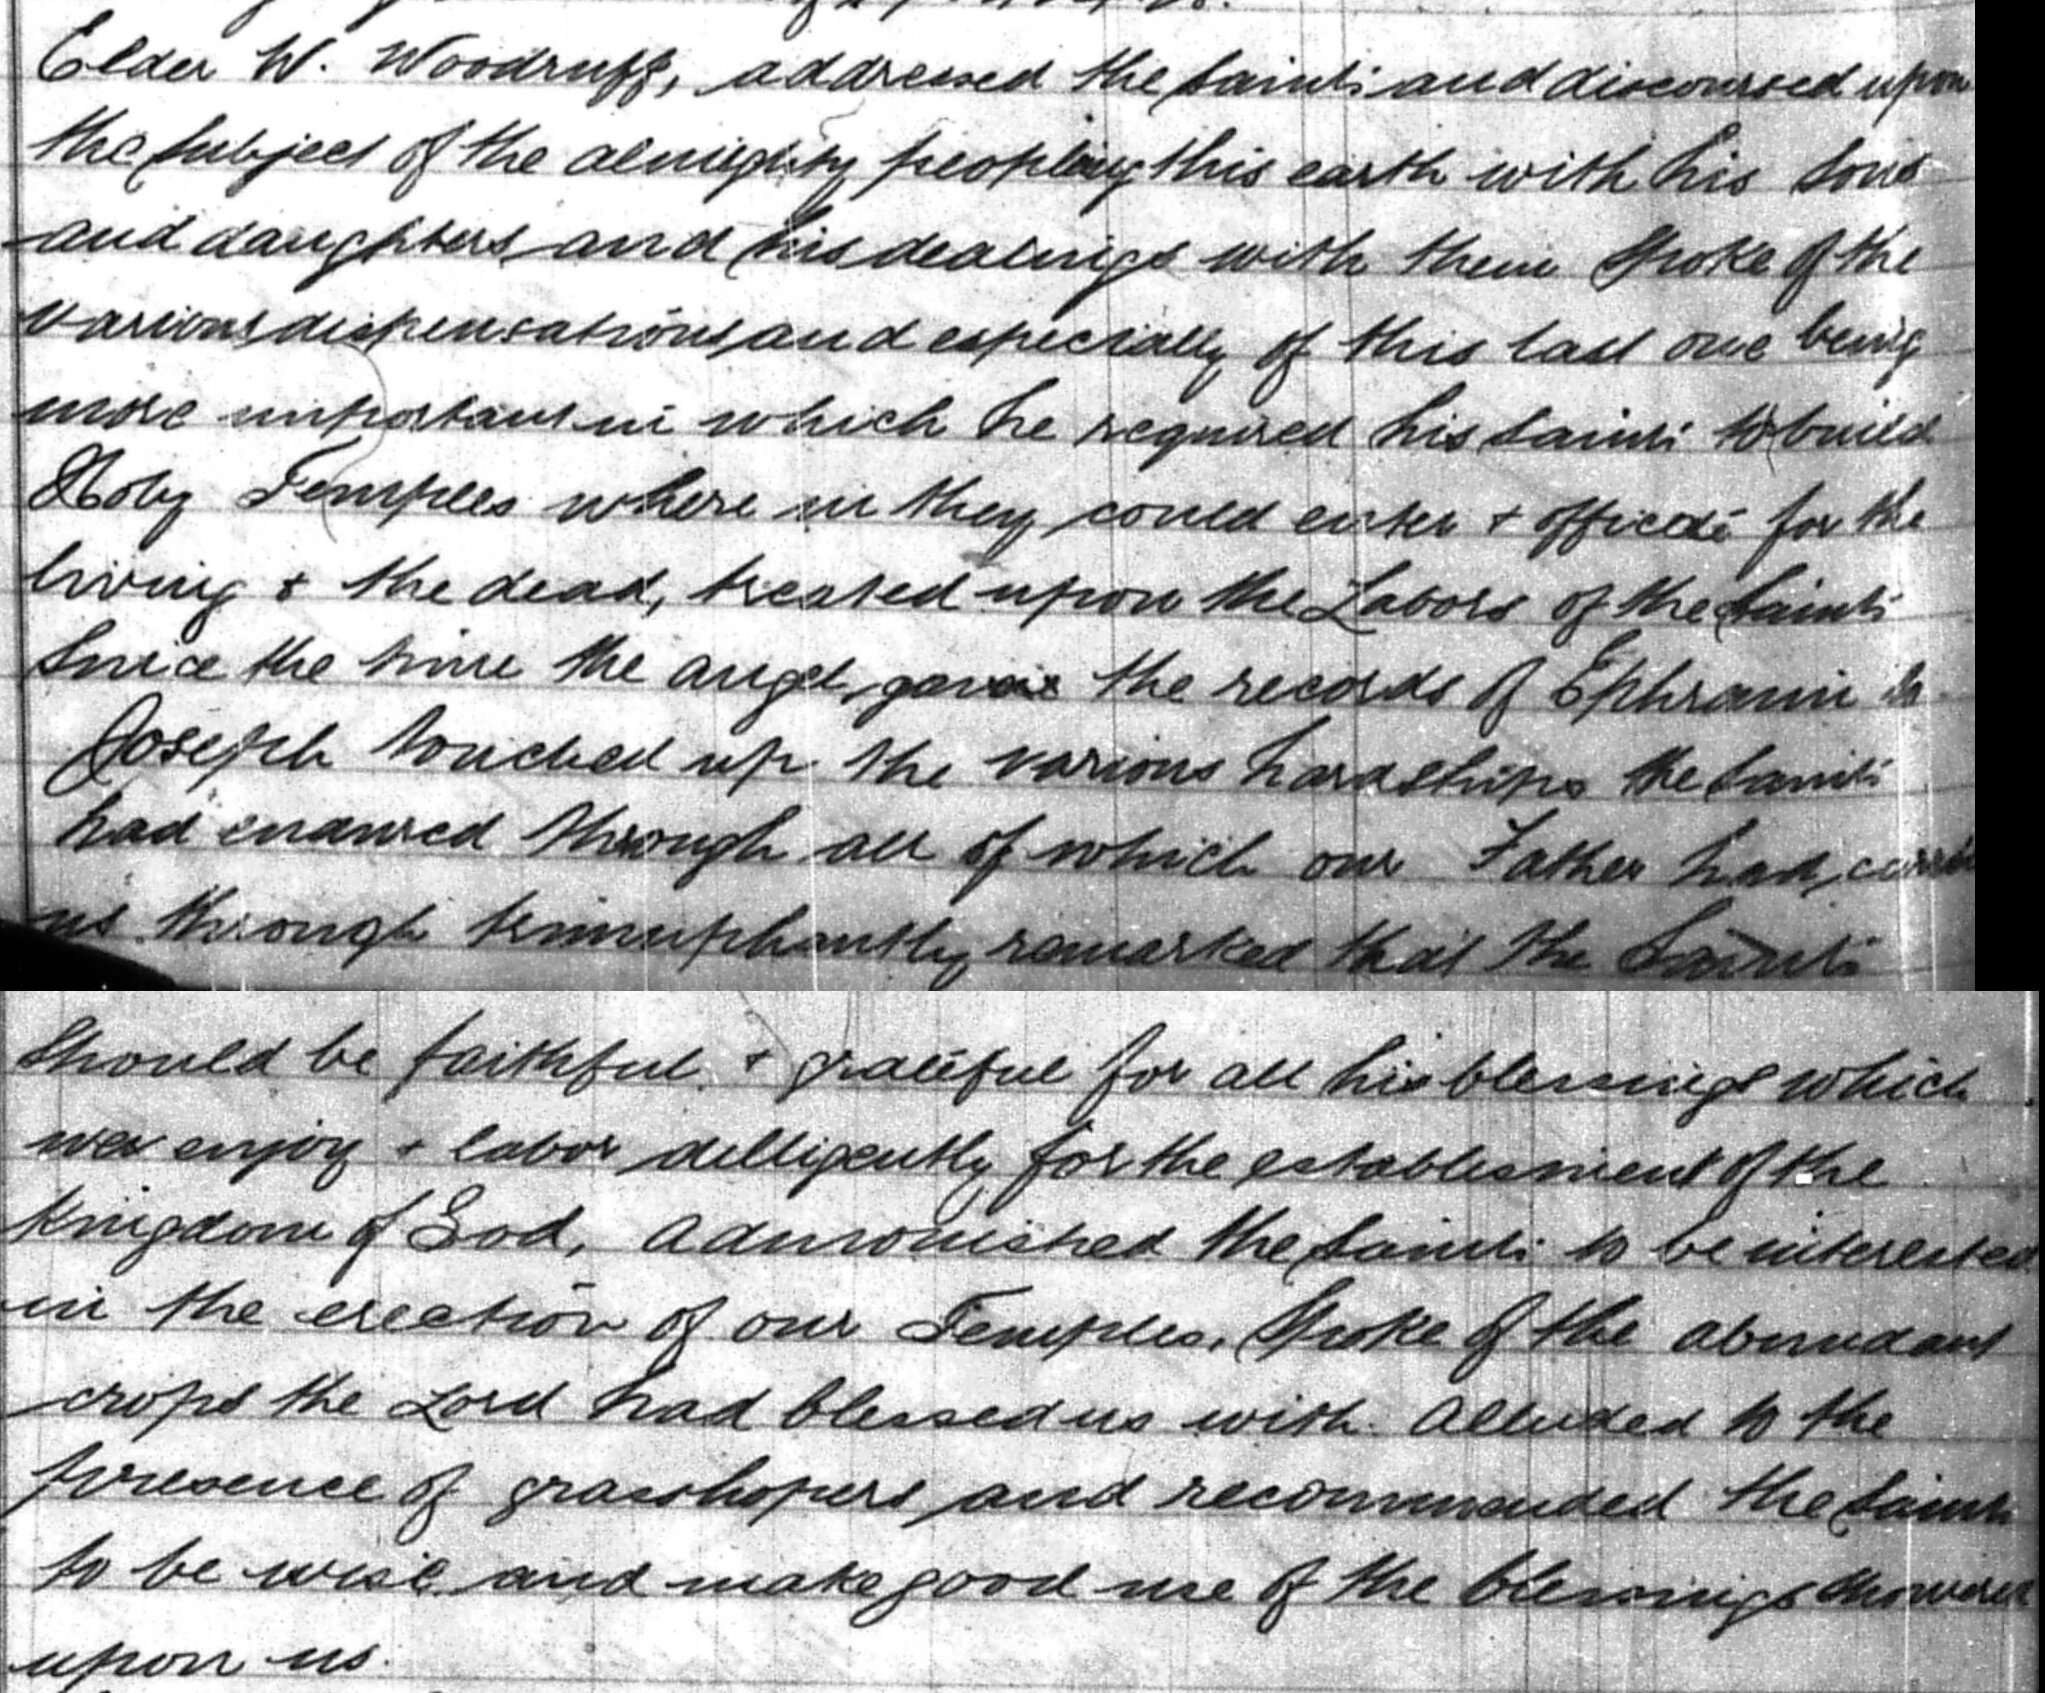 Elder W. Woodruff, addressed the Saints and discoursed upon
the Subject of the almighty peopleing this earth with his Sons
and daughters and his dealings with them Spoke of the
various dispensations and especially of this last one being
more important in which he required his Saints to build
Holy Temples where in they could enter + officate for the
living + the dead, treated upon the Labors of the Saints
Since the time the angel gave the records of Ephraim to
Joseph touched up the various hardships the Saints
had endured through all of which our Father had, carried
us through triumphantly remarked that the Saints
Should be faithful + grateful for all his blessings which
we enjoy + labor dilligently for the establesment of the
Kingdom of God, Admonished the Saints to be interested
in the erection of our Temples, Spoke of the abundant
crops the Lord had blessed us with. Alluded to the
presence of grasshopers and recommended the Saints
to be wise and make good use of the blessings showered
upon us.